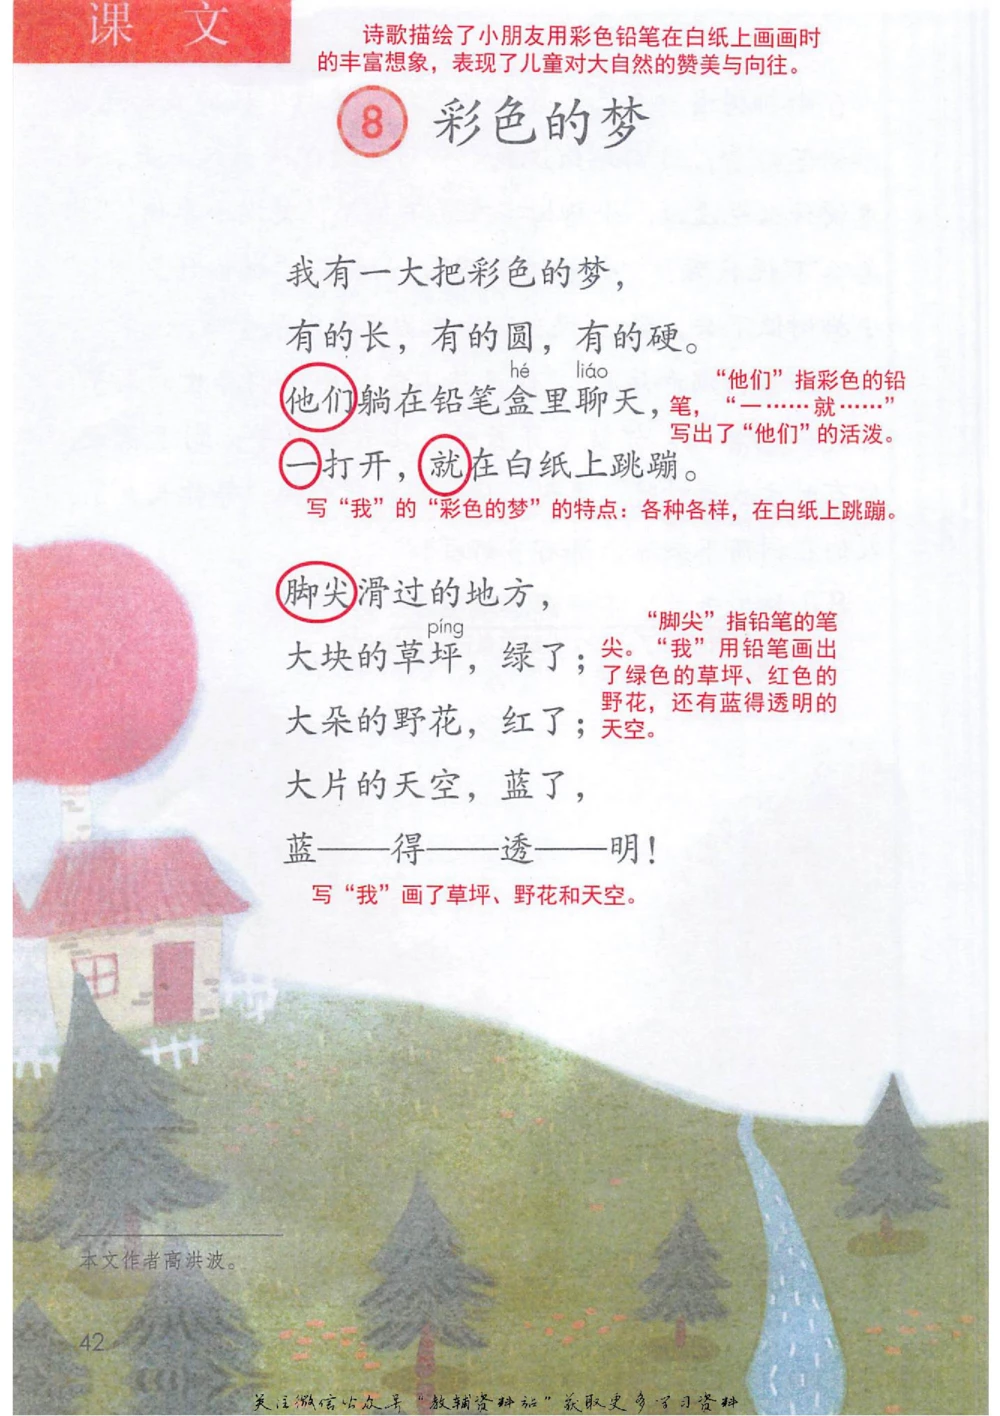 课 文
诗歌描绘了小朋友用彩色铅笔在白纸上画画时
的丰富想象，表现了儿童对大自然的赞美与向往。
8 彩色的梦
我有一大把彩色的梦，
有的长，有的圆，有的硬。
hé liáo
他们躺在铅笔盒里聊天，
“他们”指彩色的铅
笔，“一……就……”
写出了“他们”的活泼。
一打开，就在白纸上跳蹦。
写“我”的“彩色的梦”的特点：各种各样，在白纸上跳蹦。
脚尖滑过的地方，
píng
大块的草坪，绿了；
“脚尖”指铅笔的笔
尖。“我”用铅笔画出
了绿色的草坪、红色的
野花，还有蓝得透明的
天空。
大朵的野花，红了；
大片的天空，蓝了，
蓝——得——透——明！
写“我”画了草坪、野花和天空。
本文作者高洪波。
42
关注微信公众号“教辅资料站”获取更多学习资料